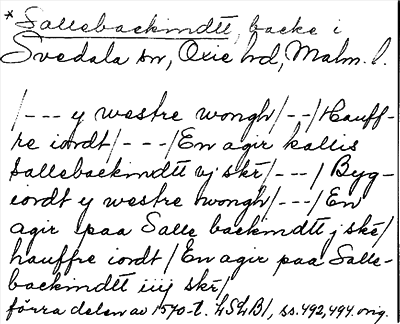 * Sallebackindtt, backe i
Svedala sn, Oxie hd, Malm. l.
/--- y westre wongh/--/Hauff-
re iordt/---/En agir kallis
Sallebackindtt vj skr/---/ Byg-
iordt y westre wongh/--/En
agir paa Salle backindtt j skr/
hauffre iordt/En agir paa Salle-
backindtt iiij skr/
förra delen av 1570-t. LSLB/, ss. 492, 494. orig.